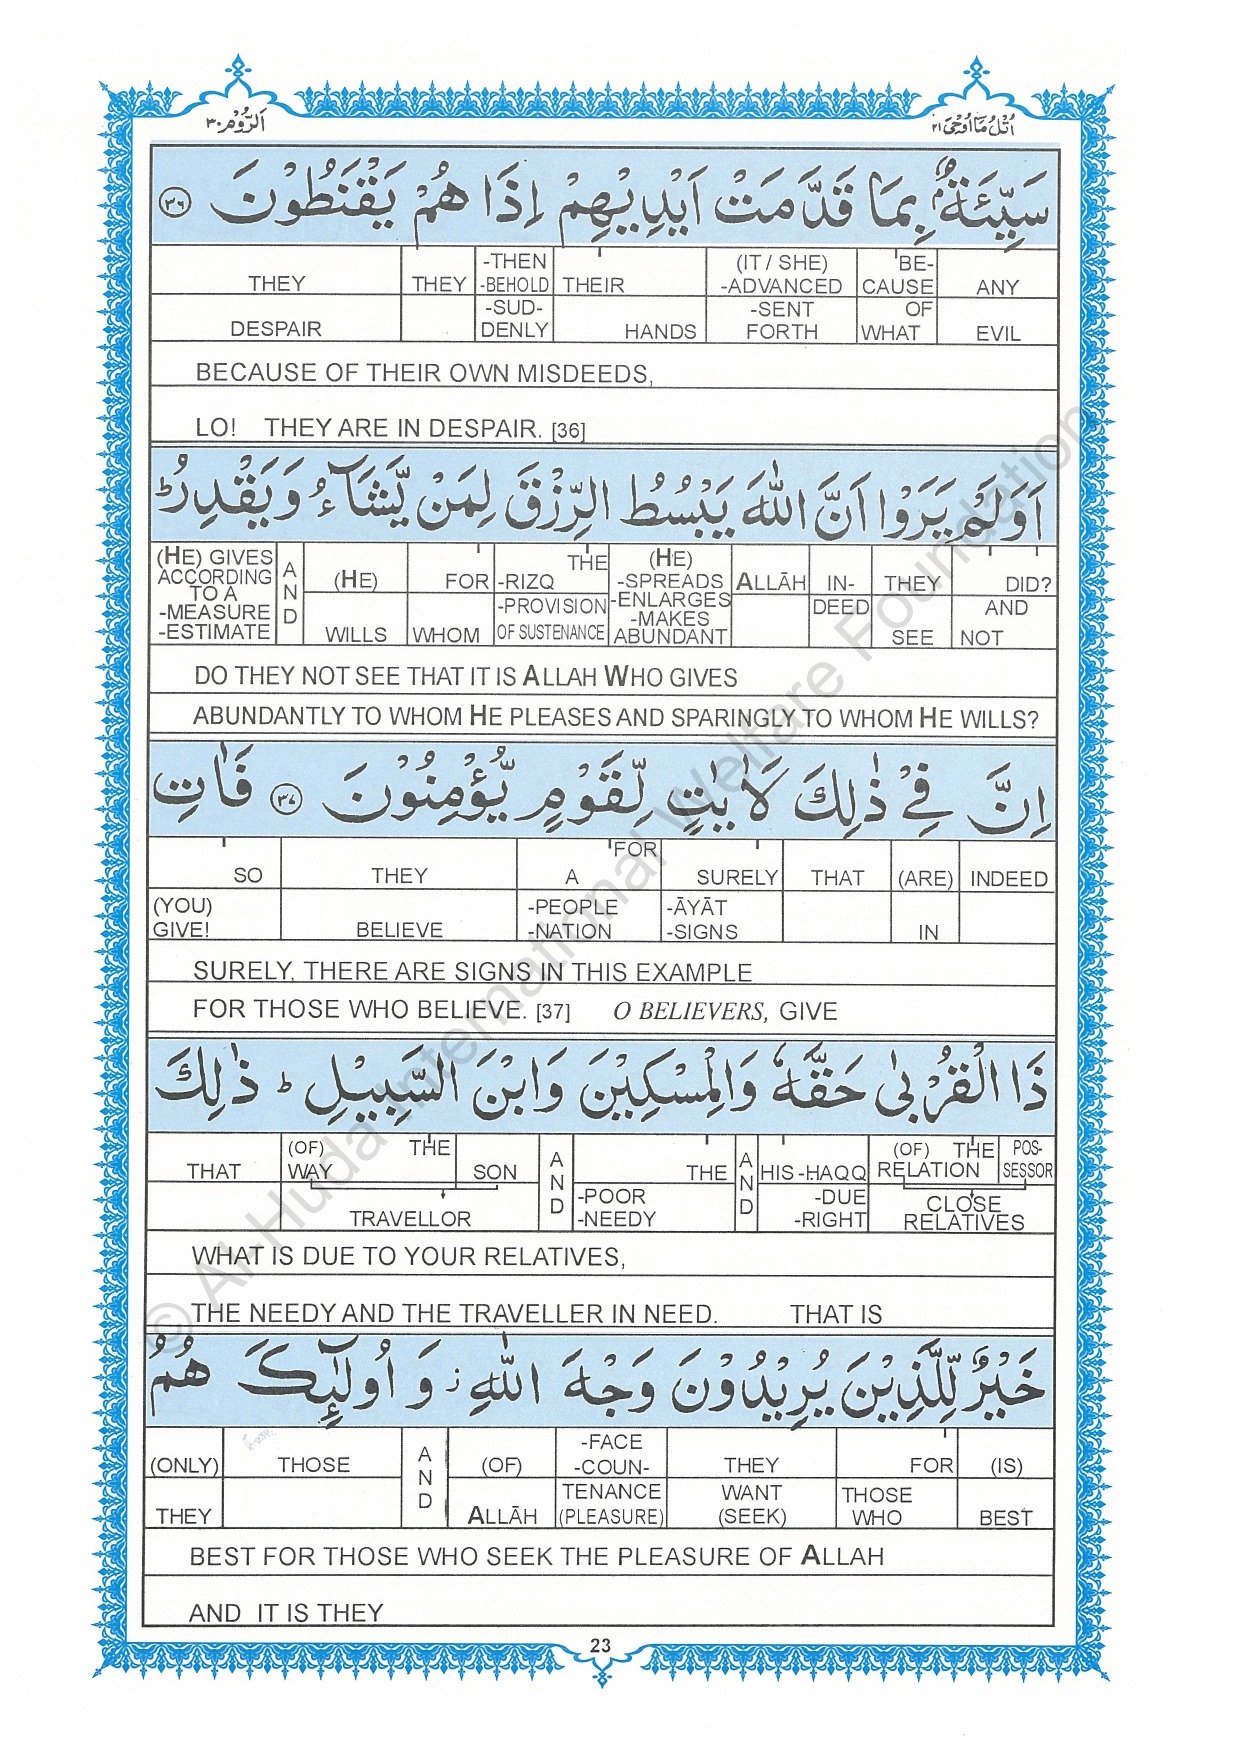 اَلرُّوْم ٣٠
اُتْلُ مَا اُوْحِیَ ٢١
سَيِّئَةٌۢ بِمَا قَدَّمَتْ اَيْدِيْهِمْ اِذَا هُمْ يَقْنَطُوْنَ ٣٦
THEY THEY -THEN -BEHOLD THEIR (IT / SHE) -ADVANCED BE- CAUSE ANY
DESPAIR -SUD- DENLY HANDS -SENT FORTH OF WHAT EVIL
BECAUSE OF THEIR OWN MISDEEDS,
LO! THEY ARE IN DESPAIR. [36]
اَوَلَمْ يَرَوْا اَنَّ اللّٰهَ يَبْسُطُ الرِّزْقَ لِمَنْ يَّشَآءُ وَيَقْدِرُ ؕ
(HE) GIVES ACCORDING TO A -MEASURE -ESTIMATE AND (HE) FOR THE -RIZQ (HE) -SPREADS -ENLARGES -MAKES ABUNDANT ALLĀH IN- THEY DID?
WILLS WHOM -PROVISION OF SUSTENANCE DEED SEE AND NOT
DO THEY NOT SEE THAT IT IS ALLAH WHO GIVES
ABUNDANTLY TO WHOM HE PLEASES AND SPARINGLY TO WHOM HE WILLS?
اِنَّ فِيْ ذٰلِكَ لَاٰيٰتٍ لِّقَوْمٍ يُّؤْمِنُوْنَ ٣٧ فَاٰتِ
SO THEY FOR A SURELY THAT (ARE) INDEED
(YOU) GIVE! BELIEVE -PEOPLE -NATION -ĀYĀT -SIGNS IN
SURELY, THERE ARE SIGNS IN THIS EXAMPLE
FOR THOSE WHO BELIEVE. [37] O BELIEVERS, GIVE
ذَا الْقُرْبٰى حَقَّهٗ وَالْمِسْكِيْنَ وَابْنَ السَّبِيْلِ ؕ ذٰلِكَ
THAT (OF) THE WAY SON AND THE AND HIS -HAQQ (OF) THE RELATION POS- SESSOR
TRAVELLOR -POOR -NEEDY -DUE -RIGHT CLOSE RELATIVES
WHAT IS DUE TO YOUR RELATIVES,
THE NEEDY AND THE TRAVELLER IN NEED. THAT IS
خَيْرٌ لِّلَّذِيْنَ يُرِيْدُوْنَ وَجْهَ اللّٰهِ ز وَ اُولٰٓئِكَ هُمُ
(ONLY) THOSE AND (OF) -FACE -COUN- THEY FOR (IS)
THEY ALLĀH TENANCE (PLEASURE) WANT (SEEK) THOSE WHO BEST
BEST FOR THOSE WHO SEEK THE PLEASURE OF ALLAH
AND IT IS THEY
23
© Al-Huda International Welfare Foundation